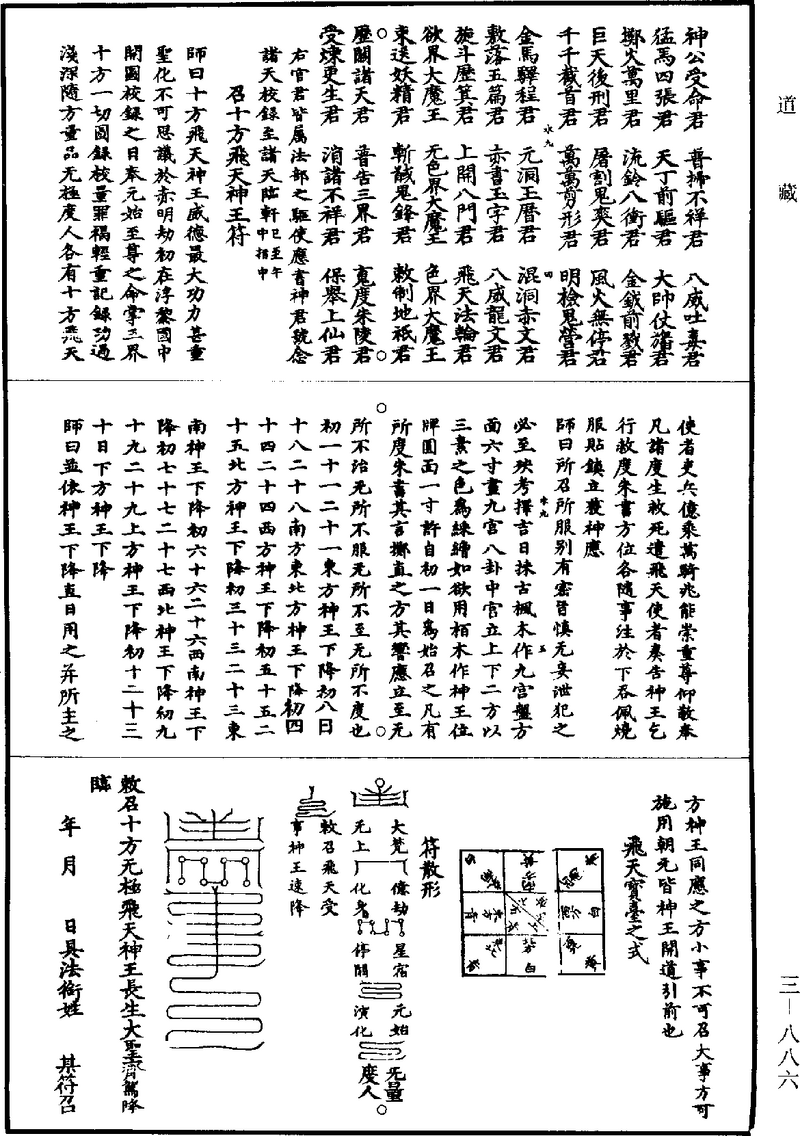 道藏
神公受命君　普掃不祥君　八威吐毒君
猛馬四張君　天丁前驅君　大帥仗旛君
擲火萬里君　流鈴八衝君　金鉞前戮君
巨天後刑君　屠割鬼爽君　風火無停君
千千截首君　萬萬剪形君　明檢鬼營君
金馬驛程君　元洞玉曆君　混洞赤文君
敷落五篇君　赤書玉字君　八威龍文君
旋斗歷箕君　上開八門君　飛天法輪君
欲界大魔王　无色界大魔王　色界大魔王
束送妖精君　斬馘鬼鋒君　敕制地祇君
歷關諸天君　普告三界君　寬度朱陵君
受煉更生君　消諸不祥君　保舉上仙君
右官君皆屬法部之驅使應書神君號念
諸天校錄至諸天臨軒巳至午中指中
召十方飛天神王符
師曰十方飛天神王威德最大功力甚重
聖化不可思議於赤明劫初在浮黎國中
開圖校錄之日奉元始至尊之命掌三界
十方一切圖錄校量罪福輕重記錄功過
淺深隨方量品无極度人各有十方飛天
使者吏兵億乘萬騎兆能崇重尊仰敬奉
凡諸度生救死遣飛天使者奏告神王乞
行救度朱書方位各隨事注於下吞佩燒
服貼鎮立獲神應
師曰所召所服別有密旨慎无妄泄犯之
必至殃考擇吉日採古楓木作九宮盤方
面六寸畫九宮八卦中宮立上下二方以
三素之色為綵繒如欲用栢木作神王位
牌圓面一寸許自初一日為始召之凡有
所度朱書其言擲直之方其響應立至无
所不治无所不服无所不至无所不度也
初一十一二十一東方神王下降初八日
十八二十八南方東北方神王下降初四
十四二十四西方神王下降初五十五二
十五北方神王下降初三十三二十三東
南神王下降初六十六二十六西南神王下
降初七十七二十七西北神王下降初九
十九二十九上方神王下降初十二十三
十日下方神王下降
師曰並依神王下降直日用之并所主之
方神王同應之方小事不可召大事方可
施用朝元皆神王開道引前也
飛天寶臺之式
符散形
大梵　億劫　星宿　元始　无量
无上　化身　停關　演化　度人
敕召飛天受
事神王速降
敕召十方无極飛天神王長生大聖濟駕降
臨
年　月　日具法銜姓　某符召
三—八八六